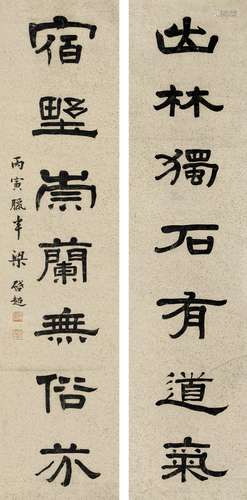 出林獨石有道氣
宿墅崇蘭無俗亦
丙寅臘半 梁啓超